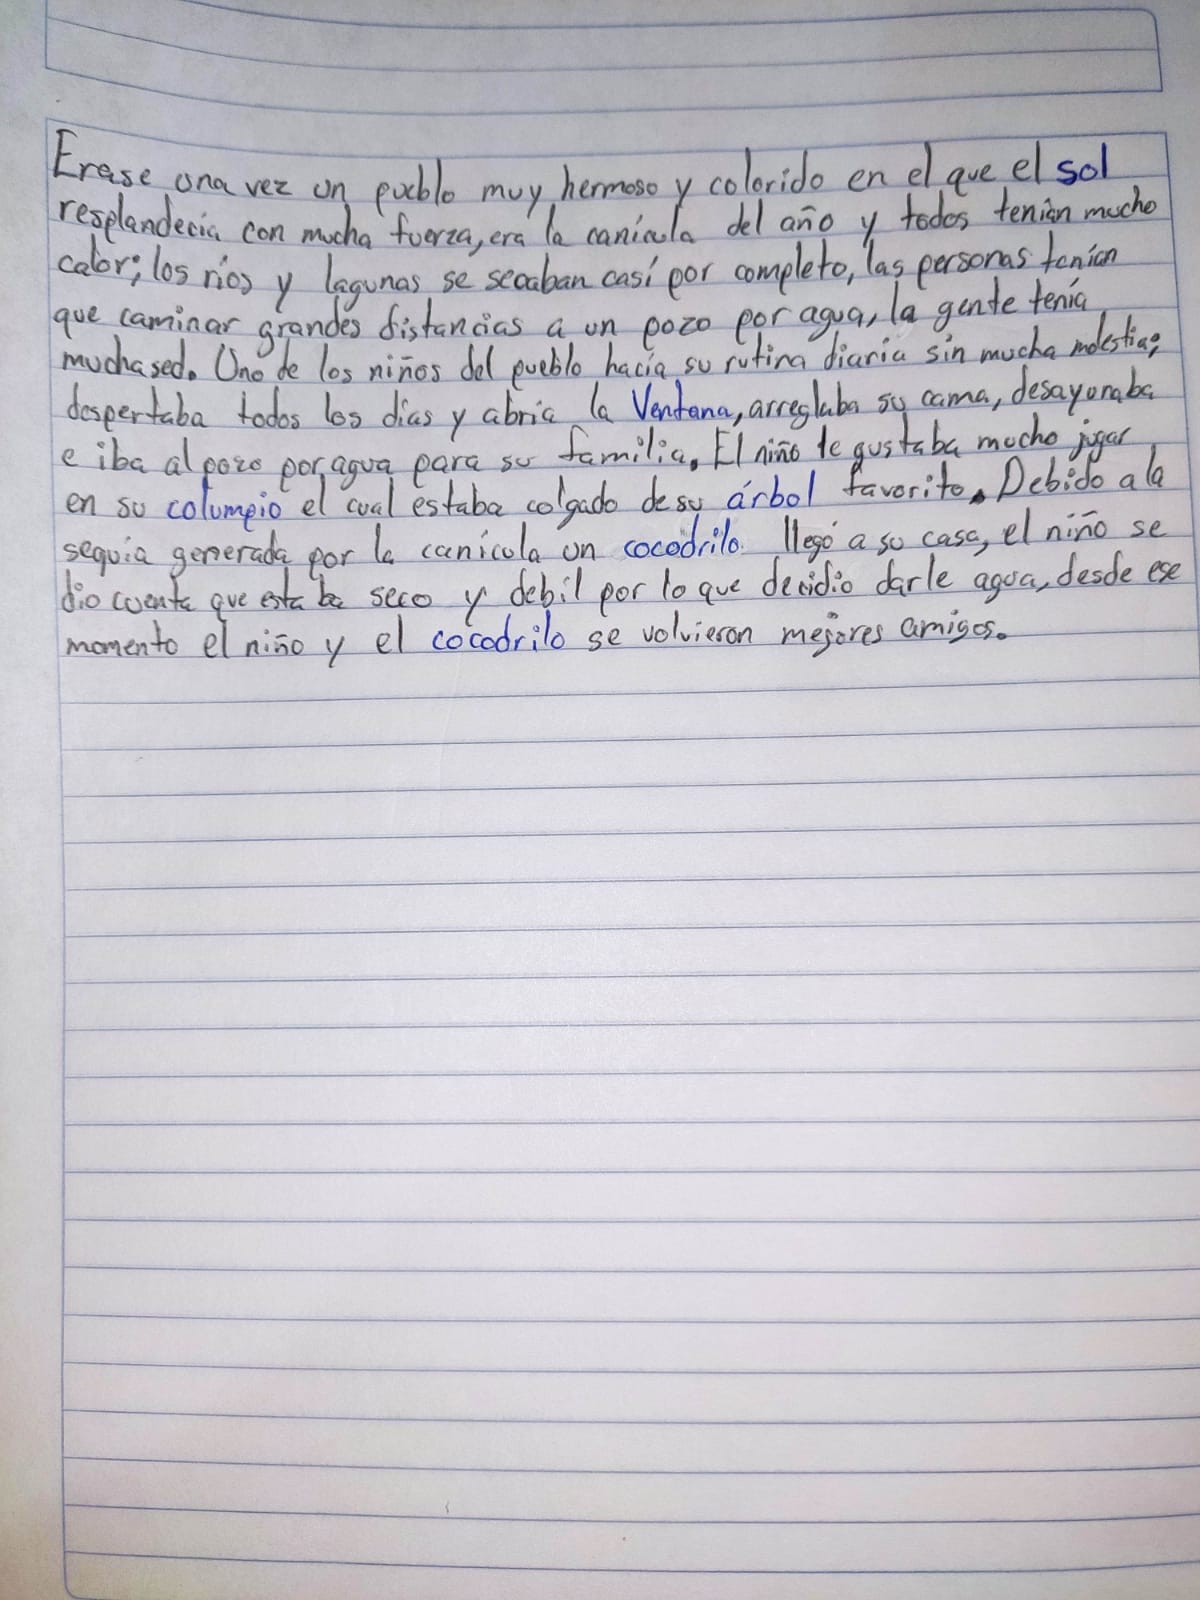 Erase una vez un pueblo muy hermoso y colorido en el que el sol
resplandecía con mucha fuerza, era la canícula del año y todos tenían mucho
calor; los ríos y lagunas se secaban casí por completo, las personas tenían
que caminar grandes distancias a un pozo por agua, la gente tenía
mucha sed. Uno de los niños del pueblo hacía su rutina diaria sin mucha molestia;
despertaba todos los días y abría la Ventana, arreglaba su cama, desayunaba
e iba al pozo por agua para su familia. El niño le gustaba mucho jugar
en su columpio el cual estaba colgado de su árbol favorito. Debido a la
sequía generada por la canícula un cocodrilo llegó a su casa, el niño se
dio cuenta que esta ba seco y debil por lo que decidio darle agua, desde ese
momento el niño y el cocodrilo se volvieron mejores amigos.